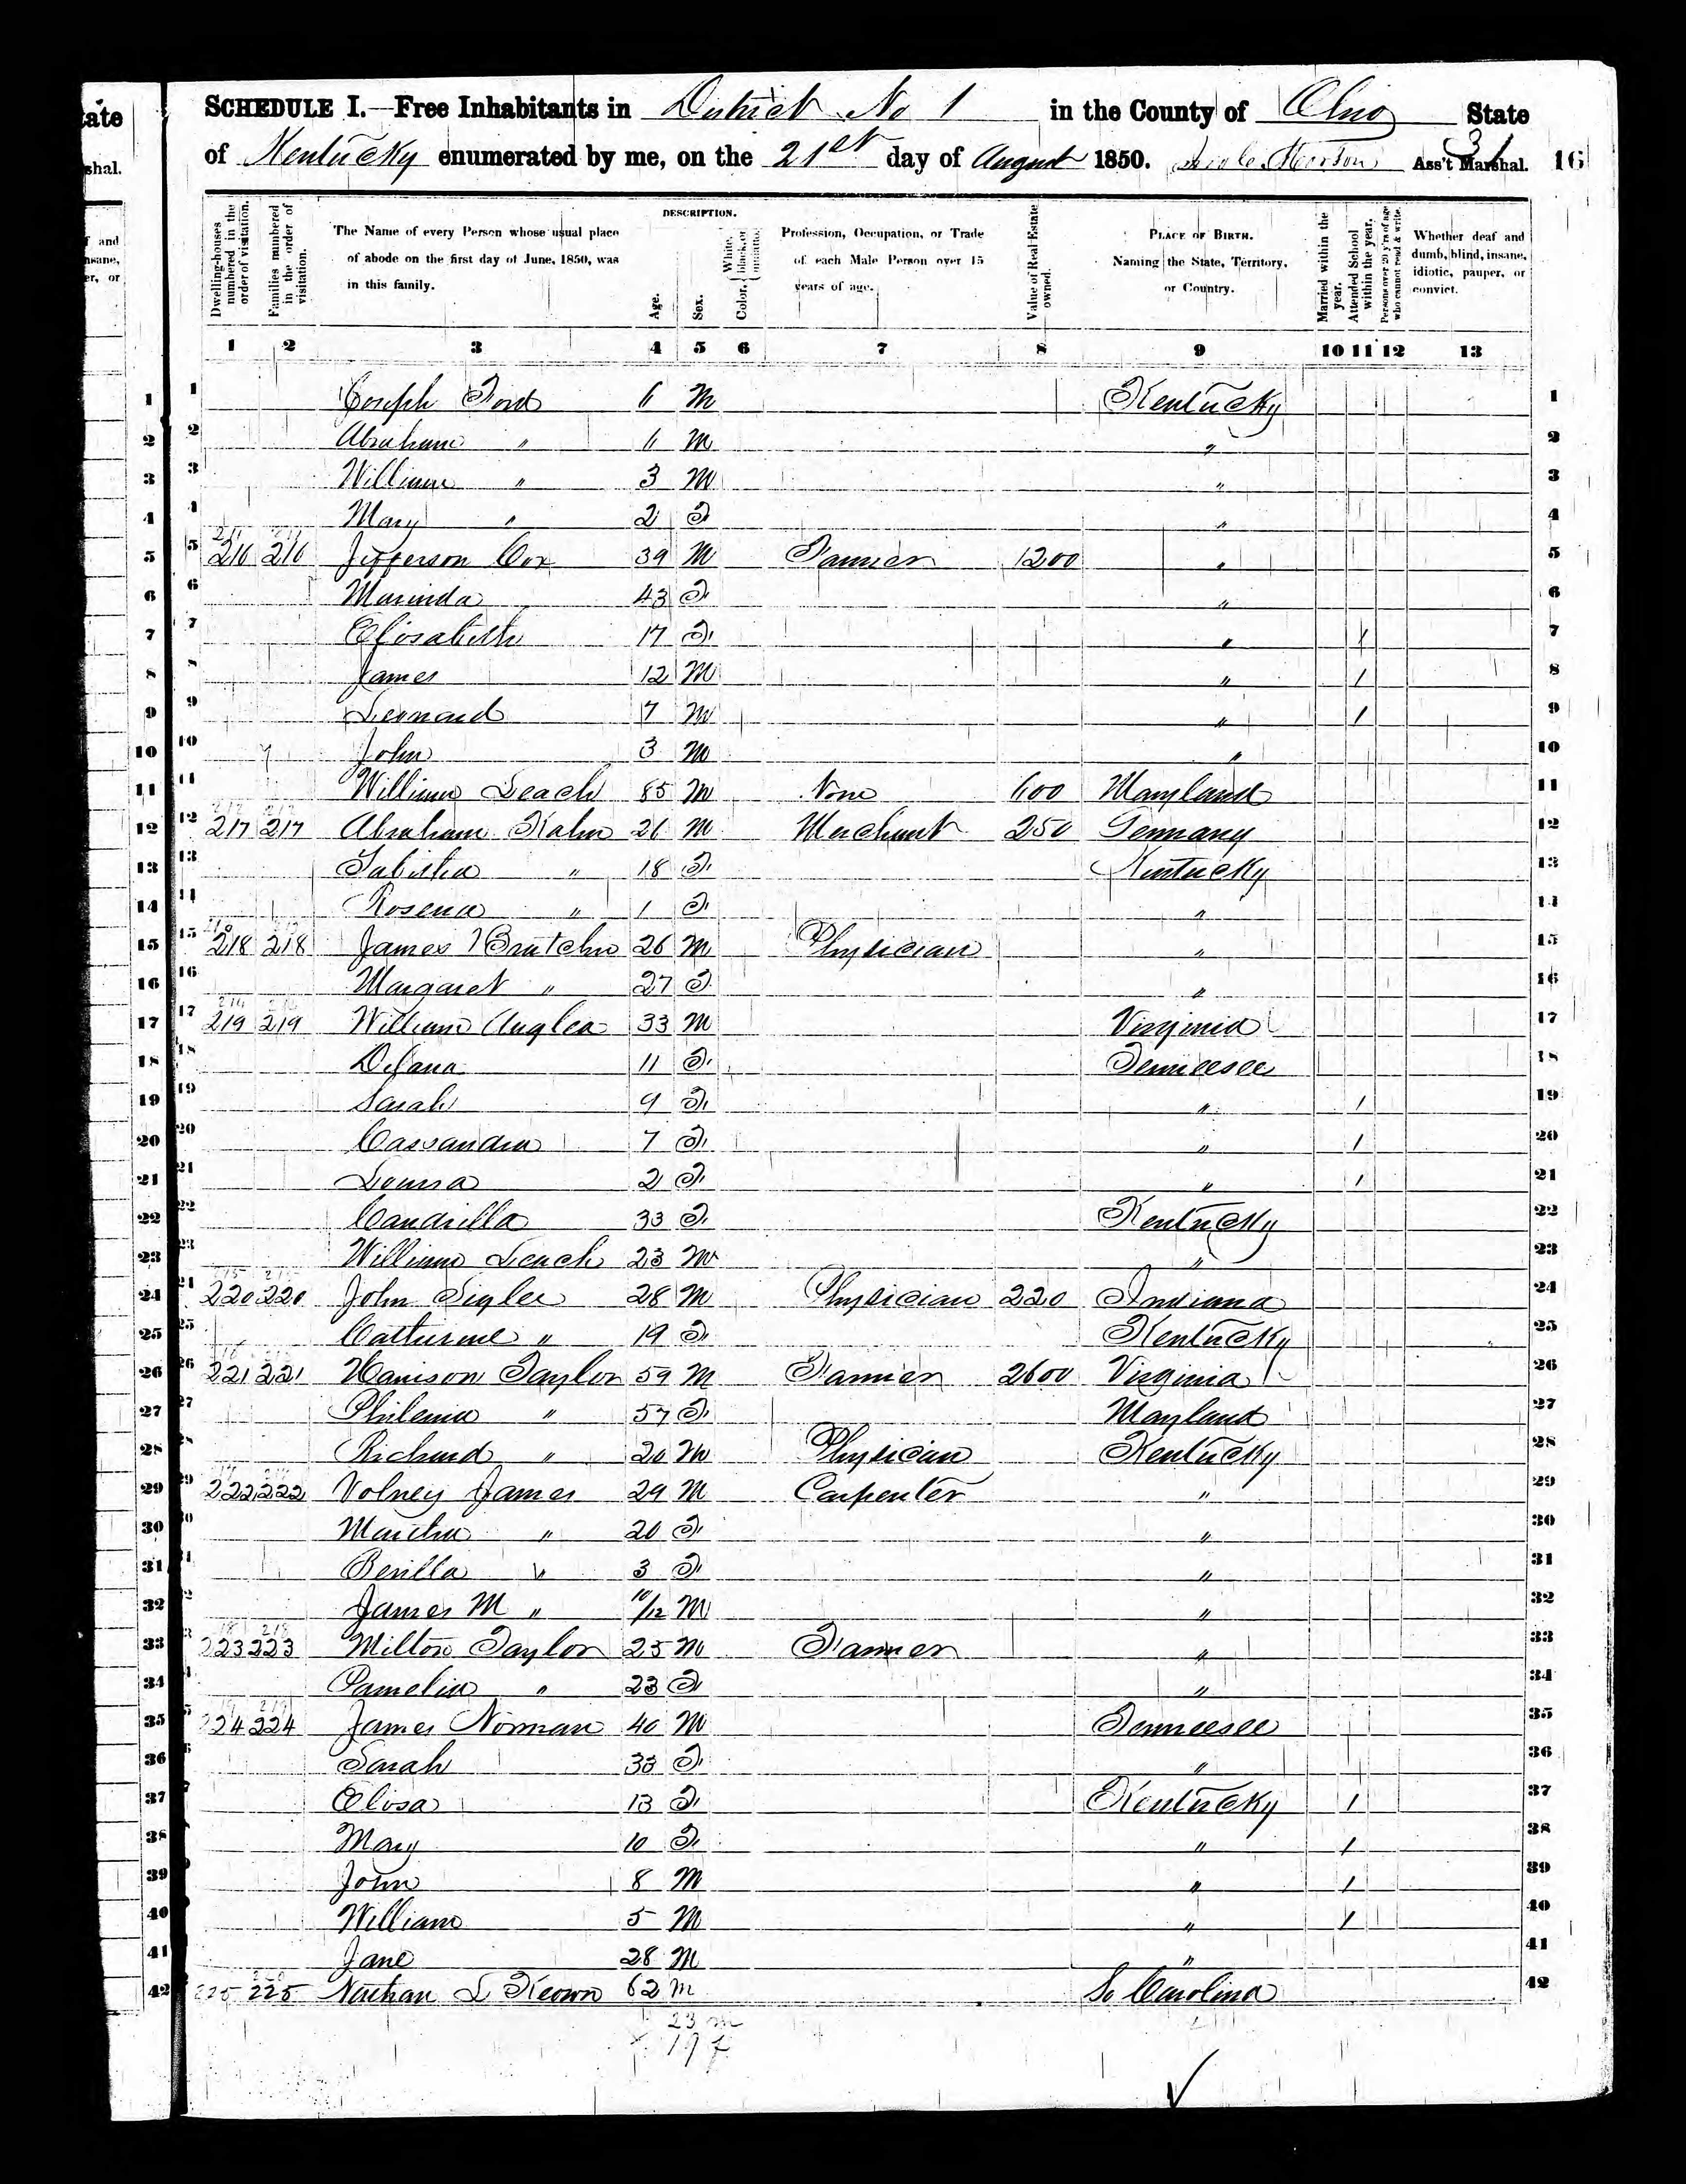 tate
shal.
f and
nsane,
er, or
SCHEDULE I.—Free Inhabitants in District No 1 in the County of Ohio State
of Kentucky enumerated by me, on the 21st day of August 1850. Morton Ass't Marshal. 16
31
Dwelling-houses numbered in the order of visitation.
Families numbered in the order of visitation.
The Name of every Person whose usual place of abode on the first day of June, 1850, was in this family.
DESCRIPTION.
Age.
Sex.
Color, { White, black, or mulatto.
Profession, Occupation, or Trade of each Male Person over 15 years of age.
Value of Real Estate owned.
PLACE OF BIRTH. Naming the State, Territory, or Country.
Married within the year.
Attended School within the year.
Persons over 20 y'rs of age who cannot read & write.
Whether deaf and dumb, blind, insane, idiotic, pauper, or convict.
1 2 3 4 5 6 7 8 9 10 11 12 13
1 Joseph Ford 6 M Kentucky 1
2 Abraham " 6 M " 2
3 William " 3 M " 3
4 Mary " 2 F " 4
5 216 216 Jefferson Cox 39 M Farmer 1200 " 5
6 Marinda 43 F " 6
7 Elisabeth 17 F " 1 7
8 James 12 M " 1 8
9 Leonard 7 M " 1 9
10 John 3 M " 10
11 William Leach 85 M None 600 Maryland 11
12 217 217 Abraham Kahn 26 M Merchant 250 Germany 12
13 Tabitha " 18 F Kentucky 13
14 Rosena " 1 F " 14
15 218 218 James Brutchr 26 M Physician " 15
16 Margaret " 27 F " 16
17 219 219 William Anglea 33 M Virginia 17
18 Delana 11 F Tennessee 18
19 Sarah 9 F " 1 19
20 Cassandra 7 F " 1 20
21 Louisa 2 F " 1 21
22 Candrilla 33 F Kentucky 22
23 William Leach 23 M " 23
24 220 220 John Sigler 28 M Physician 220 Indiana 24
25 Catharine " 19 F Kentucky 25
26 221 221 Harrison Taylor 59 M Farmer 2600 Virginia 26
27 Philenia " 57 F Maryland 27
28 Richard " 20 M Physician Kentucky 28
29 222 222 Volney James 29 M Carpenter " 29
30 Martha " 20 F " 30
31 Berilla " 3 F " 31
32 James M " 10/12 M " 32
33 223 223 Milton Taylor 25 M Farmer " 33
34 Pamelia " 23 F " 34
35 224 224 James Norman 40 M Tennessee 35
36 Sarah 33 F " 36
37 Elisa 13 F Kentucky 1 37
38 Mary 10 F " 1 38
39 John 8 M " 1 39
40 William 5 M " 1 40
41 Jane 28 M " 41
42 225 225 Nathan L Keown 62 M So Carolina 42
23 m
19 f